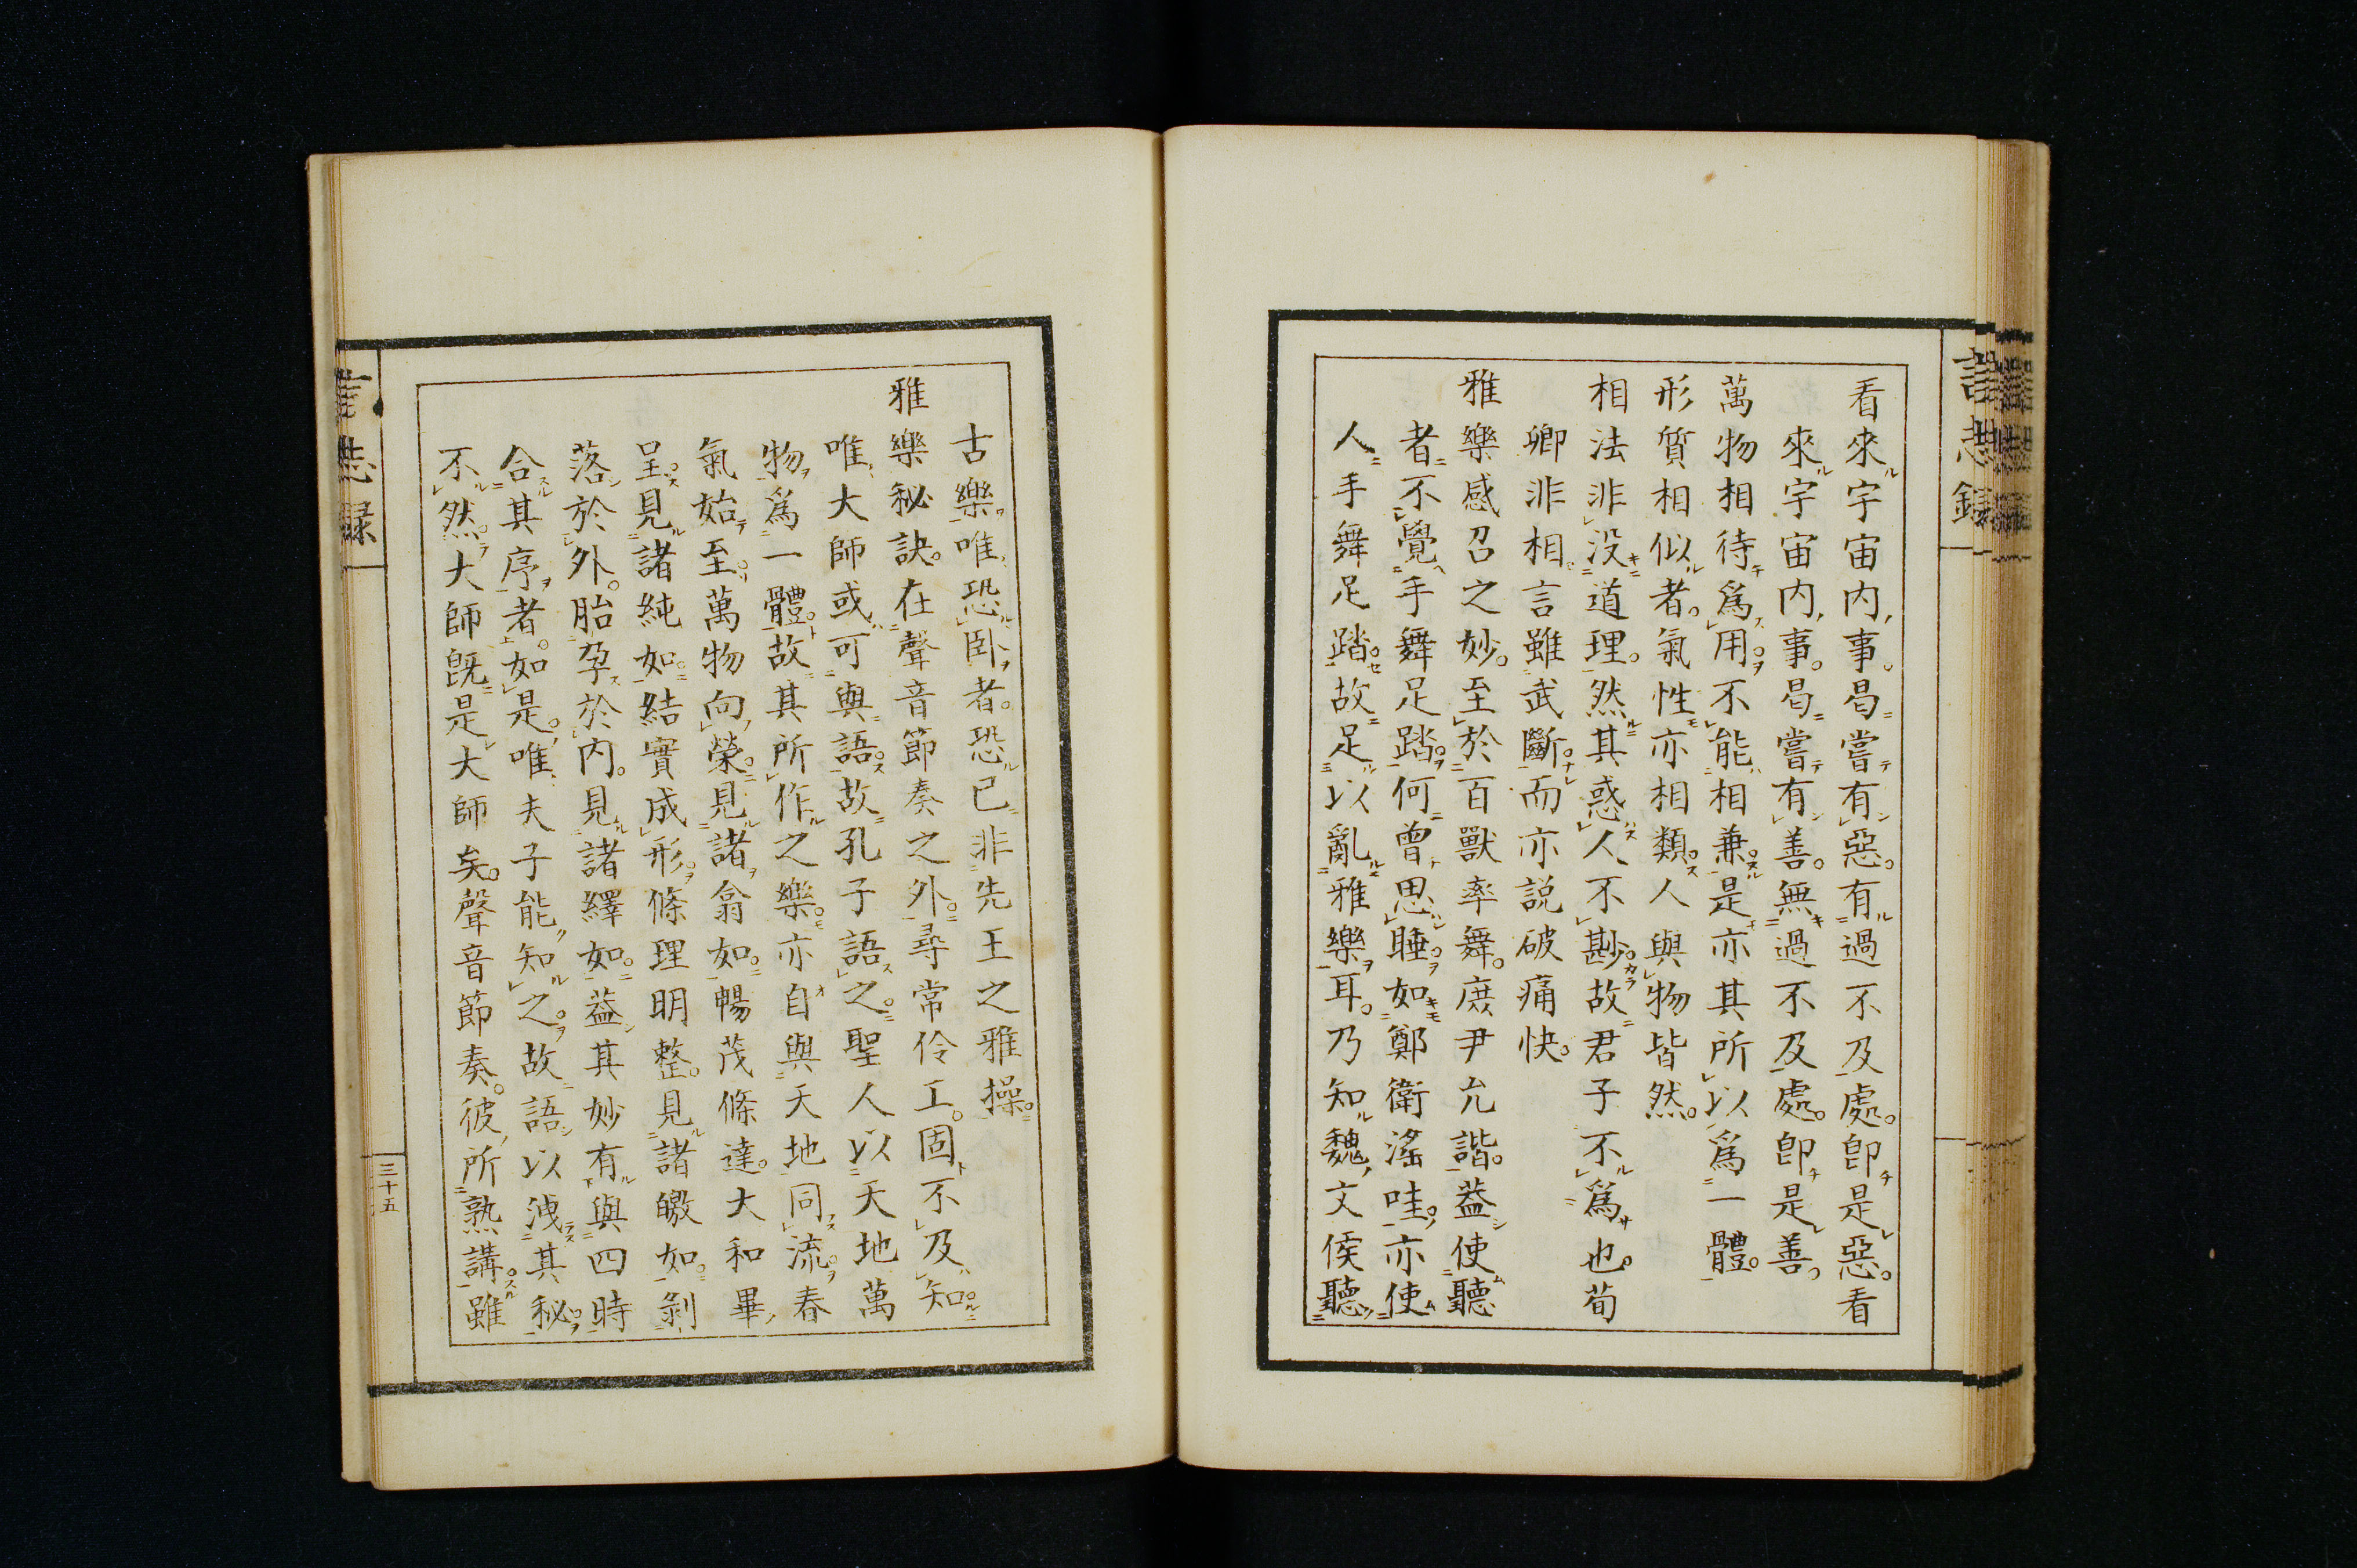 言志錄
看來宇宙内事。曷嘗有惡。有過不及處。卽是惡。看
來宇宙内事。曷嘗有善。無過不及處。卽是善。
萬物相待爲用。不能相兼。是亦其所以爲一體。
形質相似者。氣性亦相類。人與物皆然。
相法非没道理。然其惑人不尠。故君子不爲也。荀
卿非相。言雖武斷。而亦説破痛快。
雅樂感召之妙。至於百獸率舞。庶尹允諧。葢使聽
者不覺手舞足踏。何曾思睡。如鄭衛滛哇。亦使
人手舞足踏。故足以亂雅樂耳。乃知魏文侯聽
古樂。唯恐臥者。恐已非先王之雅操。
雅樂秘訣。在聲音節奏之外。尋常伶工。固不及知。
唯大師或可與語。故孔子語之。聖人以天地萬
物爲一體。故其所作之樂。亦自與天地同流。春
氣始至。萬物向榮。見諸翕如。暢茂條達。大和畢
呈。見諸純如。結實成形。條理明整。見諸皦如。剝
落於外。胎孕於内。見諸繹如。葢其妙有與四時
合其序者。如是。唯夫子能知之。故語以洩其秘。
不然。大師旣是大師矣。聲音節奏。彼所熟講。雖
言志錄
三十五